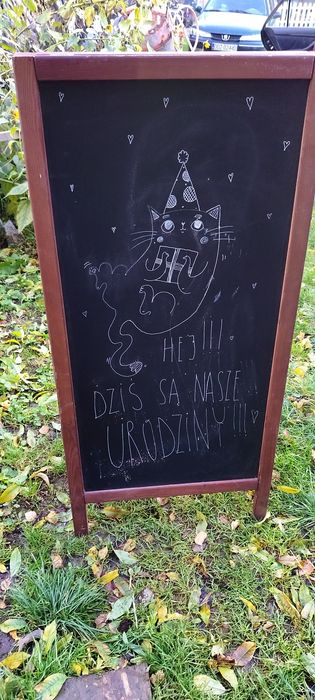 HEJ!!!
DZIŚ SĄ NASZE
URODZINY!!!